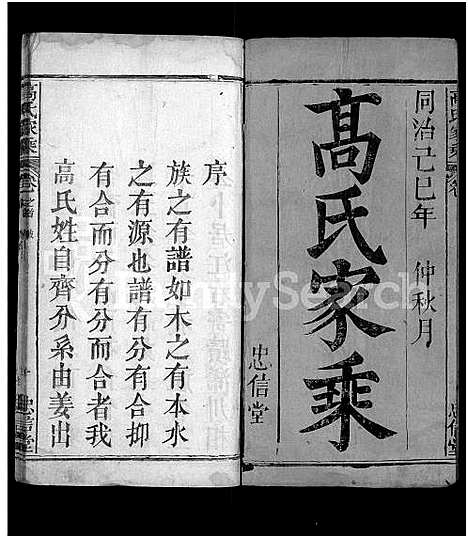 同治己巳年 仲秋月
髙氏家乘
忠信堂
序
族之有譜如木之有本水
之有源也譜有分有合抑
有合而分有分而合者我
高氏姓自齊分系由姜出
高氏家乘
忠信堂